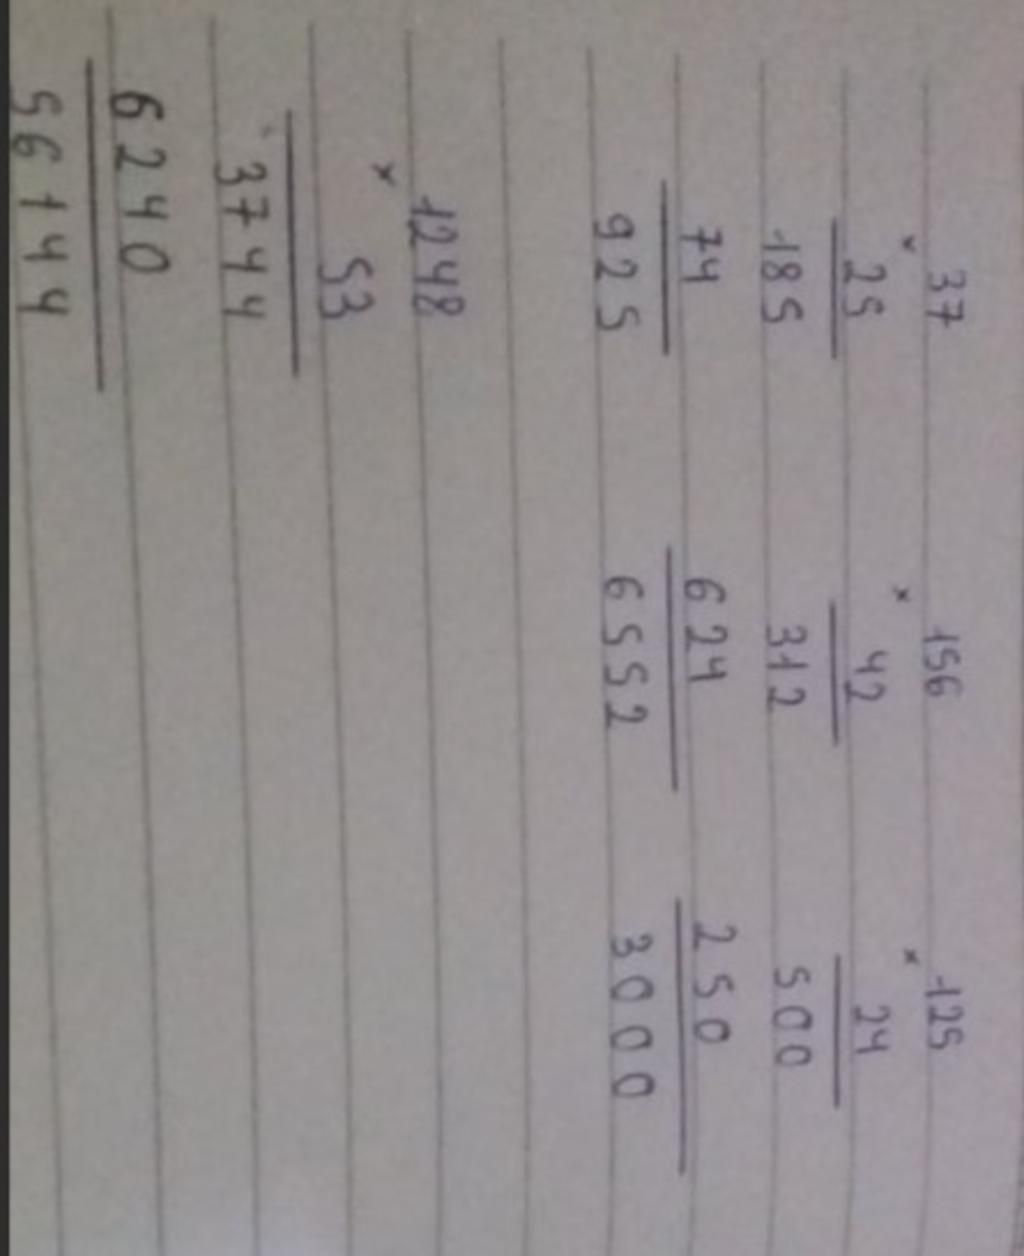 37 156 125
× 25 × 42 × 24
185 312 500
74 624 250
925 6552 3000
1248
× 53
3744
6240
56144